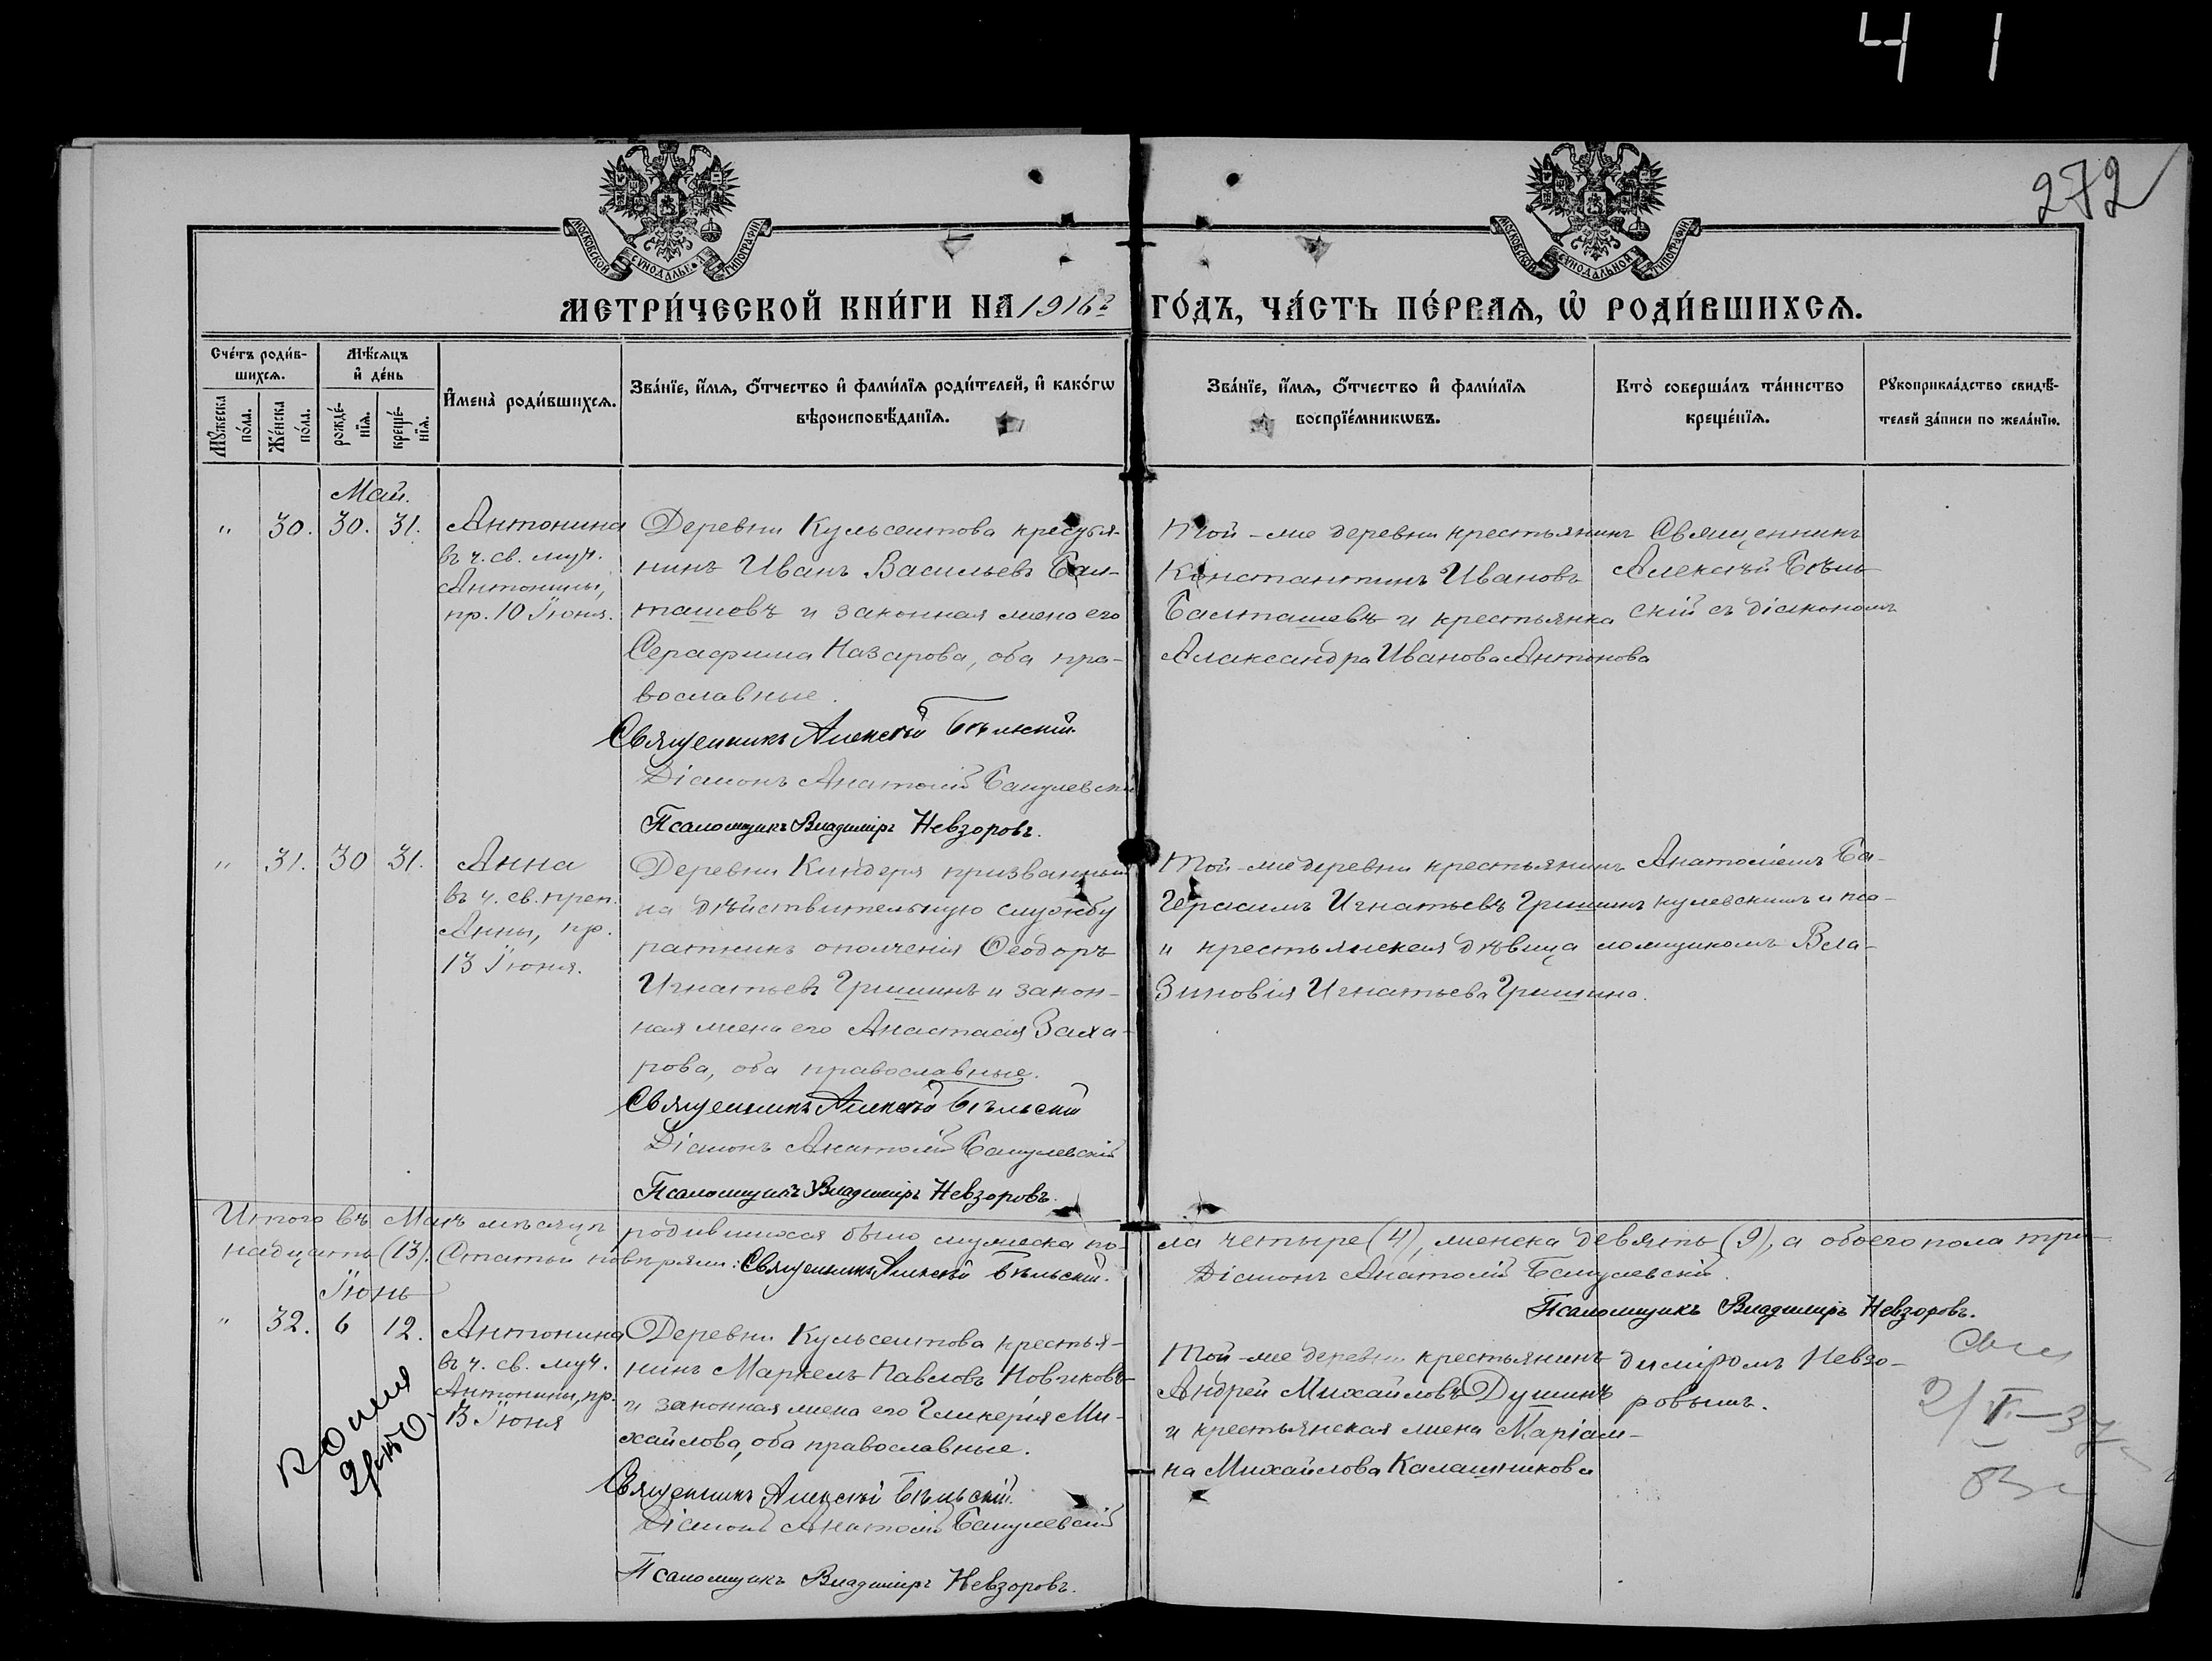 4 1
272
МОСКОВСКОЙ СѴНОДАЛЬНОЙ ТИПОГРАФІИ
МОСКОВСКОЙ СѴНОДАЛЬНОЙ ТИПОГРАФІИ
МЕТРИ́ЧЕСКОЙ КНИ́ГИ НА 1916 г. ГО́ДЪ, ЧА́СТЬ ПЕ́РВАѦ, Ѡ҆ РОДИ́ВШИХСѦ.
Сче́тъ роди́в-
шихсѧ.
Мꙋ́жеска
по́ла.
Же́нска
по́ла.
Мѣ́сѧцъ
и҆ де́нь
рожде́-
нїѧ.
креще́-
нїѧ.
И҆мена̀ роди́вшихсѧ.
Зва́нїе, и҆́мѧ, ѻ҆́тчество и҆ фами́лїѧ роди́телей, и҆ како́гѡ
вѣроисповѣ́данїѧ.
Зва́нїе, и҆́мѧ, ѻ҆́тчество и҆ фами́лїѧ
воспрїе́мникѡвъ.
Кто̀ соверша́лъ та́инство
креще́нїѧ.
Рꙋкоприкла́дство свидѣ́-
телей за́писи по жела́нїю.
Май.
" 30. 30. 31.
Антонина
въ ч. св. муч.
Антонины,
пр. 10 Іюня.
Деревни Кульсеитова крестья-
нинъ Иванъ Васильевъ Бал-
ташовъ и законная жена его
Серафима Назарова, оба пра-
вославные.
Священникъ Алексѣй Бѣльскій.
Діаконъ Анатолій Бакулевскій
Псаломщикъ Владиміръ Невзоровъ.
Той-же деревни крестьянинъ
Константинъ Ивановъ
Балташевъ и крестьянка
Александра Иванова Антонова
Священникъ
Алексѣй Бѣль-
скій съ діакономъ
" 31. 30 31.
Анна
въ ч. св. преп.
Анны, пр.
13 Іюня.
Деревни Киндеря призванный
на дѣйствительную службу
ратникъ ополченія Ѳеодоръ
Игнатьевъ Гришинъ и закон-
ная жена его Анастасія Заха-
рова, оба православные.
Священникъ Алексѣй Бѣльскій
Діаконъ Анатолій Бакулевскій
Псаломщикъ Владиміръ Невзоровъ.
Той-же деревни крестьянинъ
Герасимъ Игнатьевъ Гришинъ
и крестьянская дѣвица
Зиновія Игнатьева Гришина.
Анатоліемъ Ба-
кулевскимъ и пса-
ломщикомъ Вла-
Итого въ Маѣ мѣсяцѣ родившихся было мужеска по-ла четыре (4), женска девять (9), а обоего пола три-
надцать (13). Статьи повѣряли: Священникъ Алексѣй Бѣльскій. Діаконъ Анатолій Бакулевскій.
Псаломщикъ Владиміръ Невзоровъ.
Іюнь
" 32. 6 12.
Антонина
въ ч. св. муч.
Антонины, пр.
13 Іюня
Деревни Кульсеитова крестья-
нинъ Маркелъ Павловъ Новиковъ
и законная жена его Гликерія Ми-
хайлова, оба православные.
Священникъ Алексѣй Бѣльскій.
Діаконъ Анатолій Бакулевскій
Псаломщикъ Владиміръ Невзоровъ.
Той-же деревни крестьянинъ
Андрей Михайловъ Душинъ
и крестьянская жена Маріам-
на Михайлова Калашникова
диміромъ Невзо-
ровымъ.